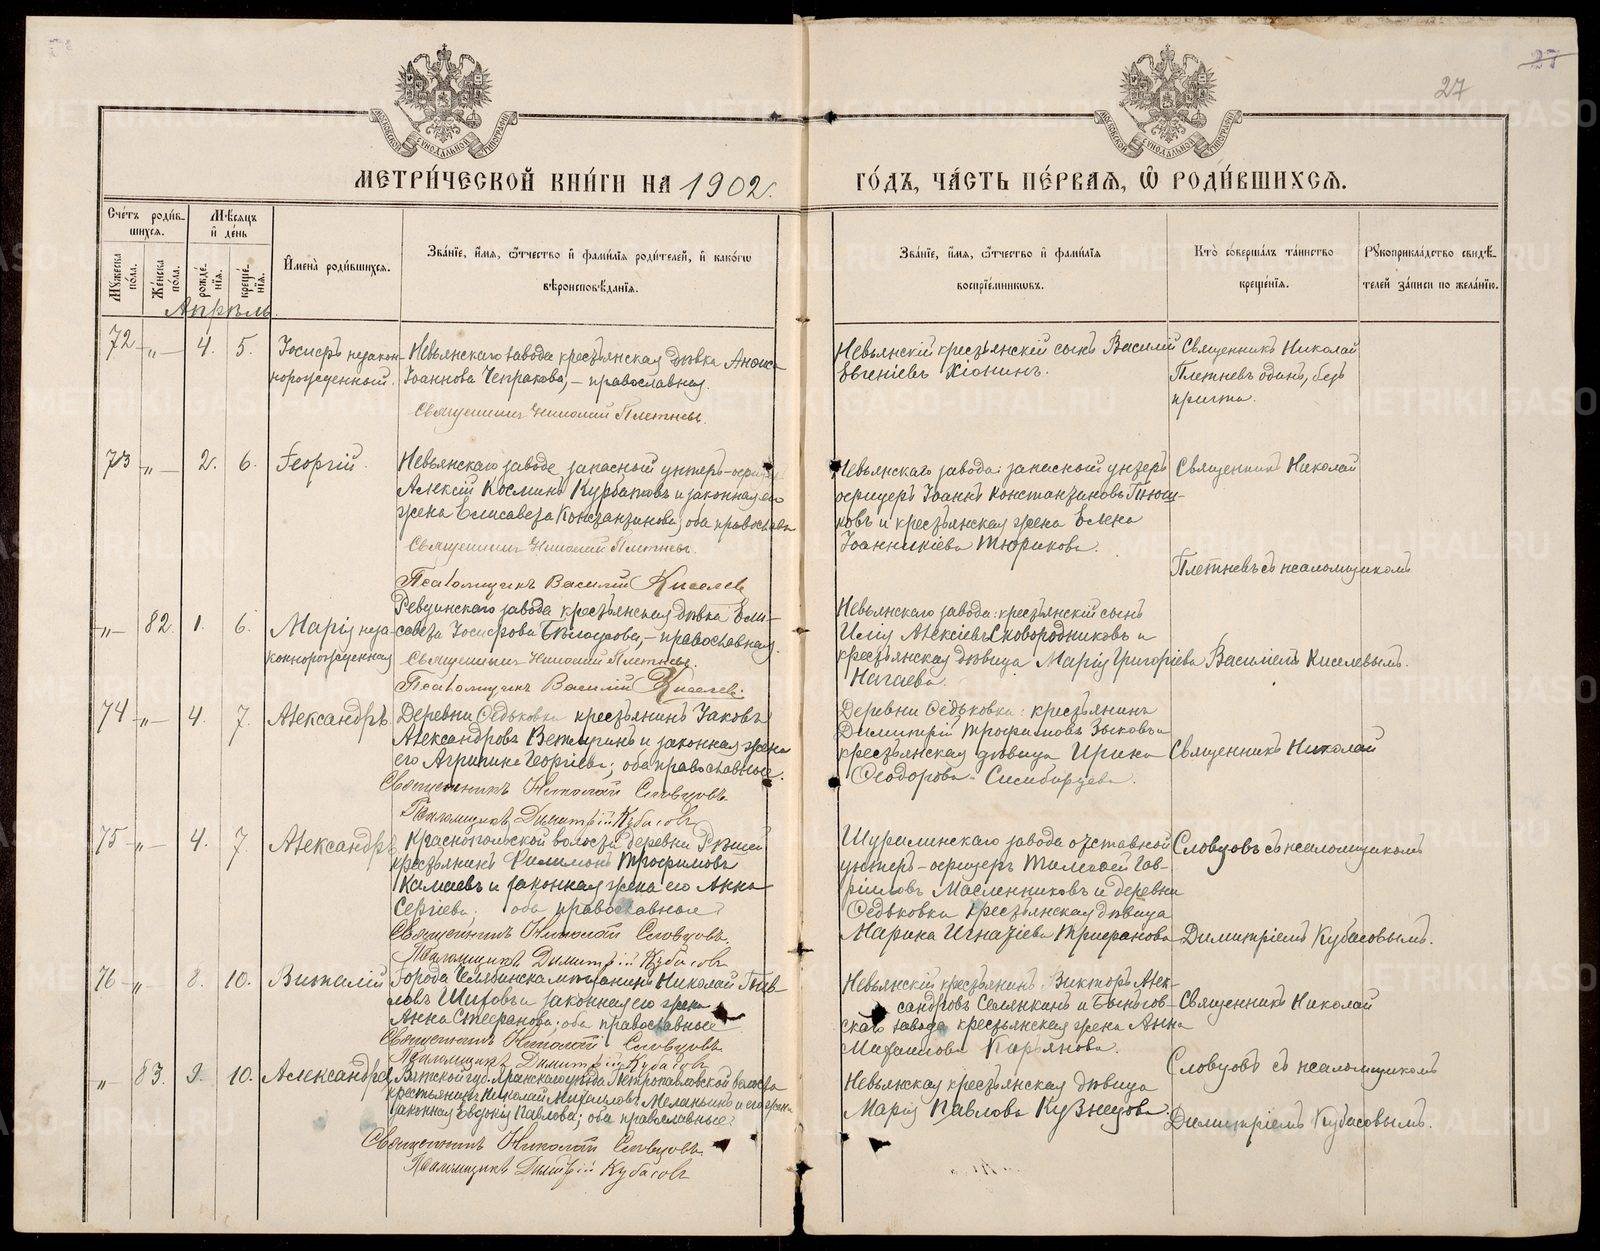 27
27
МОСКОВСКОЙ СѴНОДАЛЬНОЙ ТИПОГРАФІИ
МОСКОВСКОЙ СѴНОДАЛЬНОЙ ТИПОГРАФІИ
МЕТРИ́ЧЕСКОЙ КНИ́ГИ НА 1902 г.
ГО́ДЪ, ЧА́СТЬ ПЕ́РВАЯ, Ѡ҆ РОДИ́ВШИХСЯ.
Сче́тъ роди́в-
шихся.
Мꙋжеска по́ла.
Же́нска по́ла.
Мѣсяцъ
и҆ де́нь
рожде́нїя.
креще́нїя.
И҆мена̀ роди́вшихся.
Зва́нїе, и҆́мя, ѻ҆́тчество и҆ фами́лїя роди́телей, и҆ како́гѡ
вѣроисповѣ́данїя.
Зва́нїе, и҆́мя, ѻ҆́тчество и҆ фами́лїя
воспрїе́мниковъ.
Кто̀ соверша́лъ та́инство
креще́нїя.
Рꙋкоприкла́дство свидѣ́-
телей за́писи по жела́нїю.
Апрѣль.
72 -„- 4. 5.
Іосифъ незакон-
норожденный.
Невьянскаго завода крестьянская дѣвка Аниса
Іоаннова Чепракова, – православная.
Священникъ Николай Плетневъ.
Невьянскій крестьянскій сынъ Василій
Евгеніевъ Хіонинъ.
Священникъ Николай
Плетневъ одинъ, безъ
причта.
73 -„- 2. 6.
Георгій.
Невьянскаго завода запасный унтеръ-офицеръ
Алексій Косминъ Курбатовъ и законная его
жена Елисавета Константинова, оба православн
Священникъ Николай Плетневъ.
Псаломщикъ Василій Киселевъ
Невьянскаго завода: запасной унтеръ
офицеръ Іоаннъ Константиновъ Плюш-
ковъ и крестьянская жена Елена
Іоанникіева Тюрикова.
Священникъ Николай
Плетневъ съ псаломщикомъ
-„- 82. 1. 6.
Марія неза-
коннорожденная
Ревдинскаго завода крестьянская дѣвка Ели-
савета Іосифова Бѣлоусова, – православная.
Священникъ Николай Плетневъ.
Псаломщикъ Василій Киселевъ.
Невьянскаго завода: крестьянскій сынъ
Илія Алексіевъ Сковородниковъ и
крестьянская дѣвица Марія Григоріева
Нагаева.
Василіемъ Киселевымъ.
74 -„- 4. 7.
Александръ
Деревни Ѳедьковки крестьянинъ Іаковъ
Александровъ Ветлугинъ и законная жена
его Агрипина Георгіева; оба православные.
Священникъ Николай Словцовъ
Псаломщикъ Димитрій Кубасовъ
Деревни Ѳедьковки: крестьянинъ
Димитрій Трофимовъ Зыковъ и
крестьянская дѣвица Ирина
Ѳеодорова Сисибарцева.
Священникъ Николай
75 -„- 4. 7.
Александръ
Краснопольской волости деревни Рѣшей
крестьянинъ Филимонъ Трофимовъ
Камаевъ и законная жена его Анна
Сергіева; оба православные
Священникъ Николай Словцовъ,
Псаломщикъ Димитрій Кубасовъ
Шуралинскаго завода отставной
унтеръ-офицеръ Тимофей Гав-
ріиловъ Масленниковъ и деревни
Ѳедьковки крестьянская дѣвица
Марина Игнатіева Трифанова
Словцовъ съ псаломщикомъ
Димитріемъ Кубасовымъ.
76 -„ 8. 10.
Виталій
Города Челябинска мѣщанинъ Николай Пав-
ловъ Шиховъ и законная его жена
Анна Стефанова; оба православные
Священникъ Николай Словцовъ
Псаломщикъ Димитрій Кубасовъ
Невьянскій крестьянинъ Викторъ Алек-
сандровъ Семянкинъ и Быньгов-
скаго завода крестьянская жена Анна
Михаилова Карьянова.
Священникъ Николай
Словцовъ съ псаломщикомъ
„- 83. 9. 10.
Александра
Вятской губ. Яранскаго уѣзда Петропавловской волости
крестьянинъ Николай Михаиловъ Меланьинъ и его жена
законная Евдокія Павлова; оба православные.
Священникъ Николай Словцовъ
Псаломщикъ Димитрій Кубасовъ
Невьянская крестьянская дѣвица
Марія Павлова Кузнецова
Димитріемъ Кубасовымъ.
METRIKI.GASO-URAL.RU